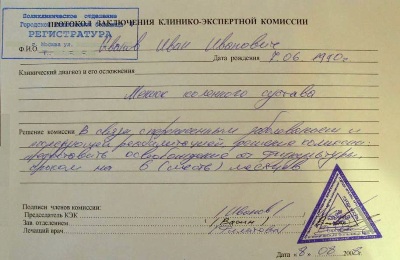 Поликлиническое отделение
РЕГИСТРАТУРА
Москва ул.
ПРОТОКОЛ ЗАКЛЮЧЕНИЯ КЛИНИКО-ЭКСПЕРТНОЙ КОМИССИИ
Ф.И.О. Иванов Иван Иванович
Дата рождения 06 1990г.
Клинический диагноз и его осложнения
коленного сустава
Решение комиссии В связи с перенесенным заболеванием и
последующей реабилитацией, решение комиссии:
предоставить освобождение от физкультуры
сроком на 6 (шесть) месяцев
Подписи членов комиссии:
Председатель КЭК /Иванов/
Зав. отделением
Лечащий врач
Дата 8. 08. 2008г.